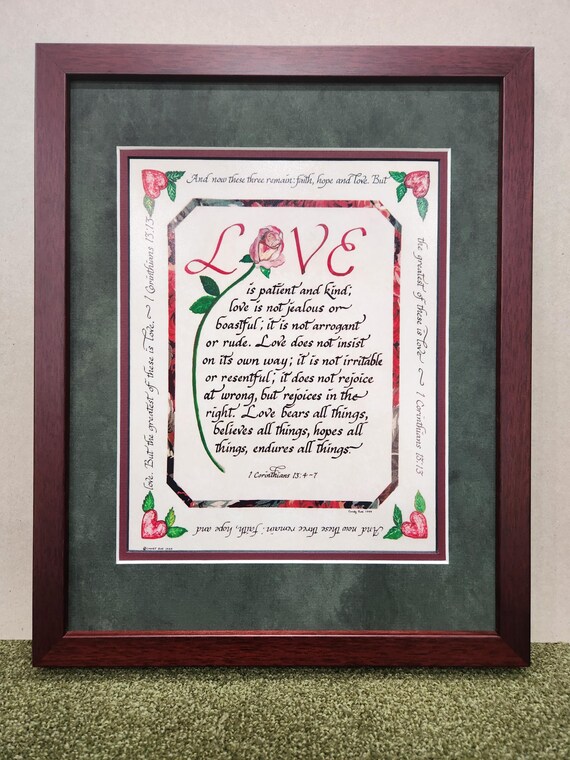 And now these three remain: faith, hope and love. But
the greatest of these is love ~ 1 Corinthians 13:13
And now these three remain: faith, hope and
love. But the greatest of these is love. ~ 1 Corinthians 13:13
LOVE
is patient and kind;
love is not jealous or
boastful; it is not arrogant
or rude. Love does not insist
on its own way; it is not irritable
or resentful; it does not rejoice
at wrong, but rejoices in the
right. Love bears all things,
believes all things, hopes all
things, endures all things.
1 Corinthians 13:4-7